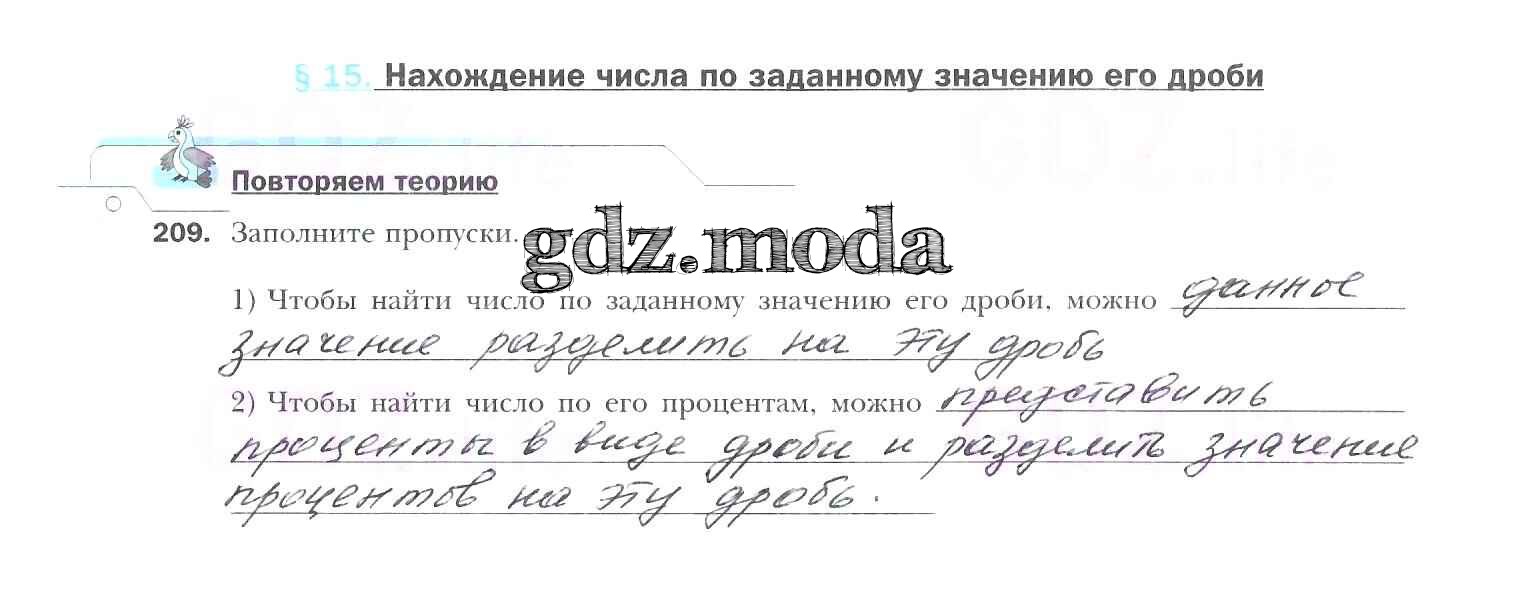 § 15. Нахождение числа по заданному значению его дроби
Повторяем теорию
209. Заполните пропуски.
gdz.moda
1) Чтобы найти число по заданному значению его дроби, можно данное
значение разделить на эту дробь
2) Чтобы найти число по его процентам, можно представить
проценты в виде дроби и разделить значение
процентов на эту дробь.